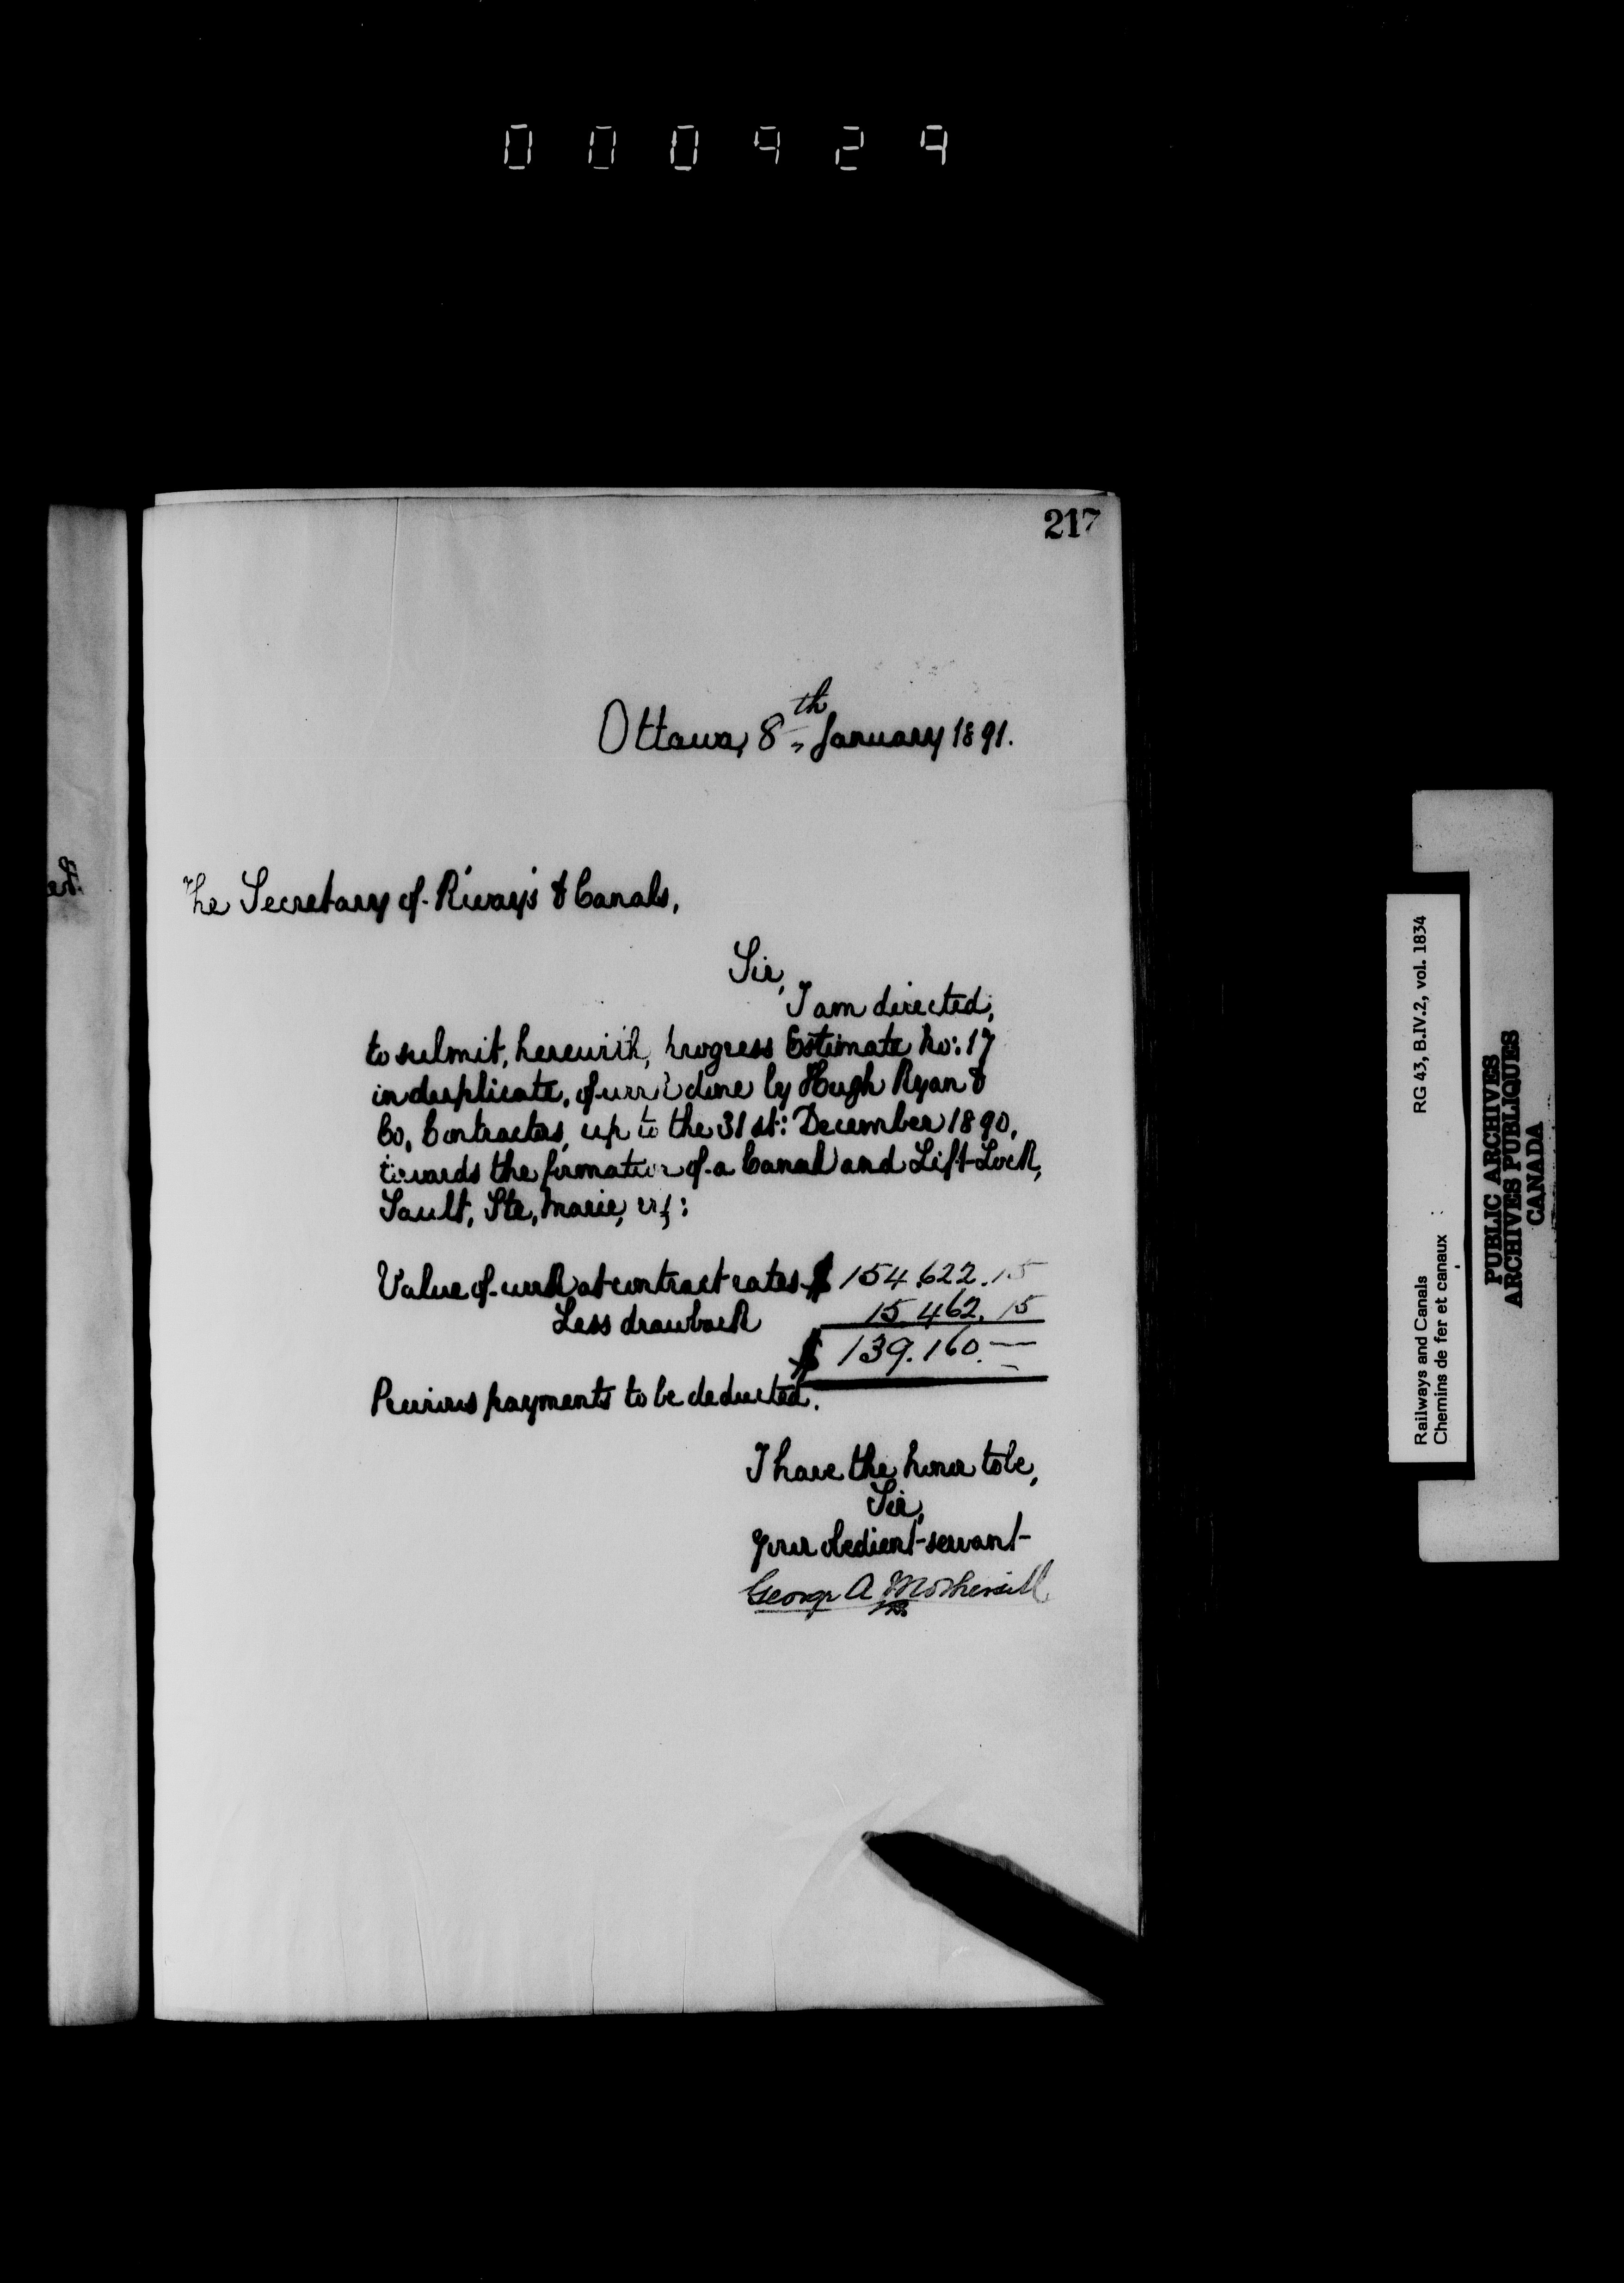 000929
217
Ottawa, 8th January 1891.
The Secretary of R'ways & Canals,
Sir,
I am directed,
to submit, herewith, progress Estimate No: 17
in duplicate, of work done by Hugh Ryan &
Co, Contractors, up to the 31st: December 1890,
towards the formation of a Canal and Lift-Lock,
Sault, Ste, Marie, viz:
Value of work at contract rates $ 154.622.15
Less drawback 15.462.15
$ 139.160.—
Previous payments to be deducted.
I have the honor to be,
Sir,
your obedient servant
George A Mothersill
Railways and Canals RG 43, B.IV.2, vol. 1834
Chemins de fer et canaux
PUBLIC ARCHIVES
ARCHIVES PUBLIQUES
CANADA